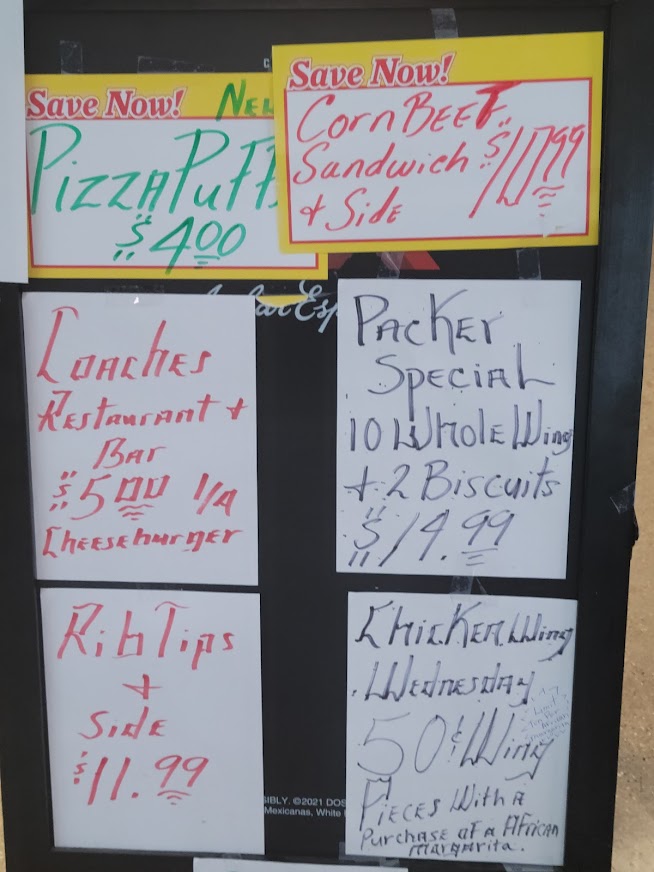 Save Now!
NEW
PIZZA PUFF
$4.00
Save Now!
Corn BEEF
Sandwich $10.99
+ Side
Coaches
Restaurant +
Bar
$5.00 1/4
Cheeseburger
PACKER
SPECIAL
10 Whole Wing
+ 2 Biscuits
$14.99
Rib Tips
+
Side
$11.99
Chicken Wing
Wednesday
50¢ Wing
Pieces With A
Purchase of a African
margarita.
SIBLY. ©2021 DOS
Mexicanas, White